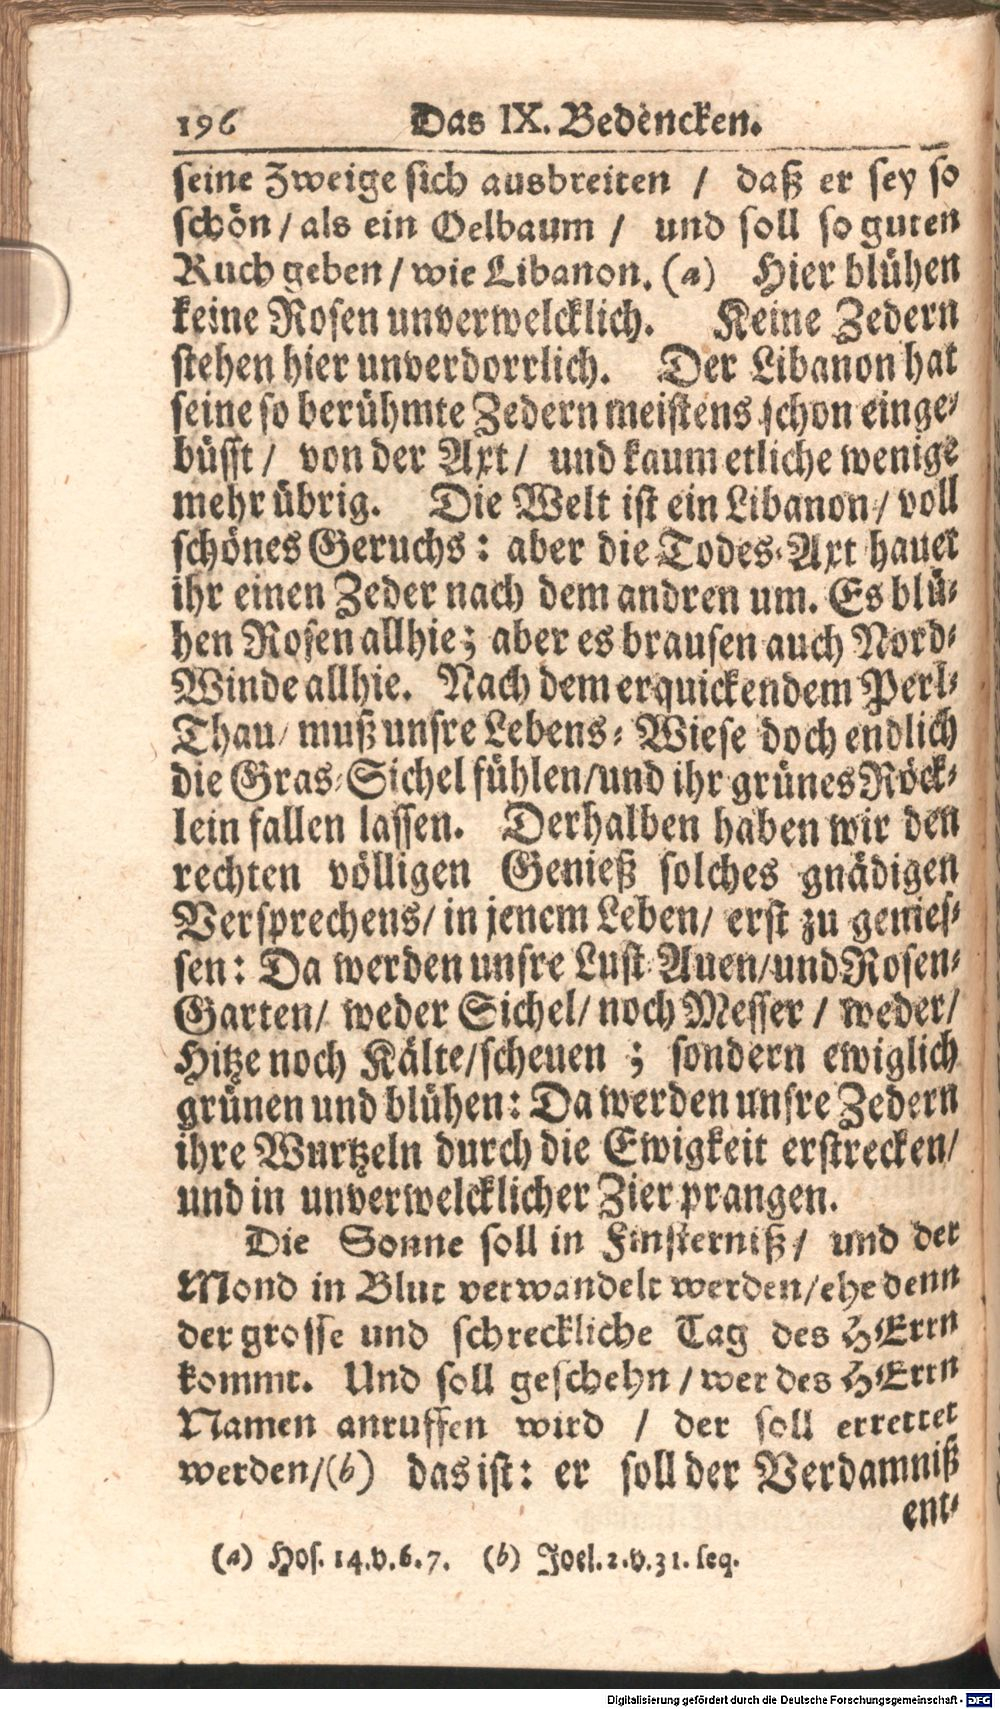 196 Das IX. Bedencken.
seine Zweige sich ausbreiten / daß er sey so
schön / als ein Oelbaum / und soll so guten
Ruch geben / wie Libanon. (a) Hier blühen
keine Rosen unverwelcklich. Keine Zedern
stehen hier unverdorrlich. Der Libanon hat
seine so berühmte Zedern meistens schon einge-
büsst / von der Axt / und kaum etliche wenige
mehr übrig. Die Welt ist ein Libanon / voll
schönes Geruchs: aber die Todes-Axt hauet
ihr einen Zeder nach dem andren um. Es blü-
hen Rosen allhie; aber es brausen auch Nord-
Winde allhie. Nach dem erquickendem Perl-
Thau / muß unsre Lebens-Wiese doch endlich
die Gras-Sichel fühlen / und ihr grünes Röck-
lein fallen lassen. Derhalben haben wir den
rechten völligen Genieß solches gnädigen
Versprechens / in jenem Leben / erst zu genies-
sen: Da werden unsre Lust-Auen / und Rosen-
Garten / weder Sichel / noch Messer / weder /
Hitze noch Kälte / scheuen ; sondern ewiglich
grünen und blühen: Da werden unsre Zedern
ihre Wurtzeln durch die Ewigkeit erstrecken /
und in unverwelcklicher Zier prangen.
Die Sonne soll in Finsterniß / und der
Mond in Blut verwandelt werden / ehe denn
der grosse und schreckliche Tag des HErrn
kommt. Und soll geschehn / wer des HErrn
Namen anruffen wird / der soll errettet
werden / (b) das ist: er soll der Verdamniß
ent-
(a) Hos. 14. v. 6. 7. (b) Joel. 2. v. 31. seq.
Digitalisierung gefördert durch die Deutsche Forschungsgemeinschaft - DFG